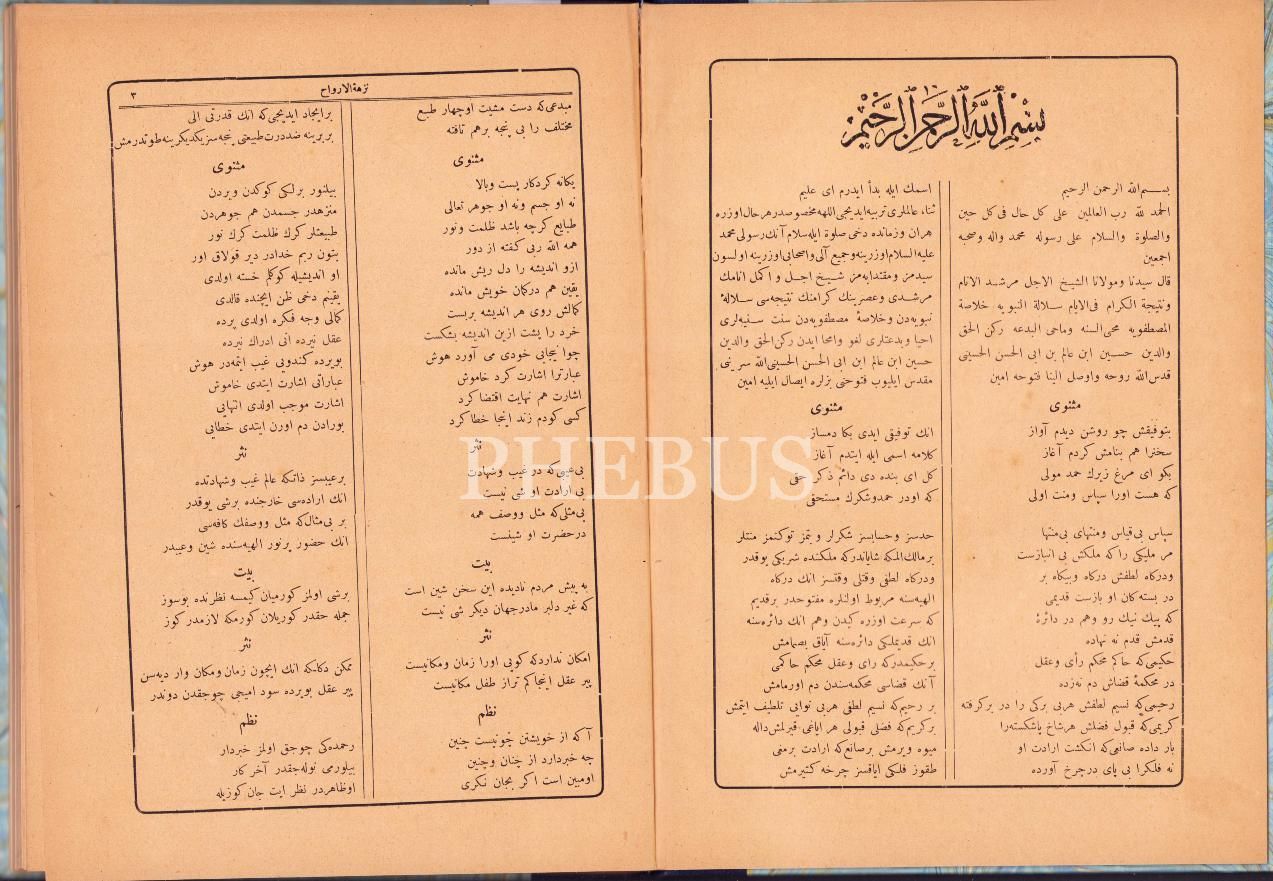 بسم الله الرحمن الرحيم
بسم الله الرحمن الرحيم
الحمد لله رب العالمين على كل حال فى كل حين
والصلوة والسلام على رسوله محمد واله وصحبه
اجمعين
قال سيدنا ومولانا الشيخ الاجل مرشد الانام
ونتيجة الكرام فى الايام سلالة النبويه خلاصة
المصطفويه محى السنه وماحى البدعه ركن الحق
والدين حسين ابن عالم بن ابى الحسن الحسينى
قدس الله روحه واوصل الينا فتوحه امين
مثنوى
بتوفيقش چو روشن ديدم آواز
سخنرا هم بنامش كردم آغاز
بكو اى مرغ زيرك حمد مولى
كه هست اورا سپاس ومنت اولى
سپاس بى قياس ومنتهاى بى منتها
مر مليكى راكه ملكش بى انبازست
ودركاه لطفش دركاه وبيكاه بر
در بسته كان او بازست قديمى
كه پيك نيك رو وهم در دائرۀ
قدمش قدم نه نهاده
حكيمى كه حاكم محكم رأى وعقل
در محكمۀ قضاش دم نه زده
رحيمى كه نسيم لطفش هربى بركى را در بركرفته
كريمى كه قبول فضلش هرشاخ باشكسته را
بار داده صانعى كه انكشت ارادت او
نه فلكرا بى پاى درچرخ آورده
اسمك ايله بدأ ايدرم اى عليم
ثناء عالملرى تربيه ايديجى اللهه مخصوصدر هرحال اوزره
هران وزمانده دخى صلوة ايله سلام آنك رسولى محمد
عليه السلام اوزرينه وجميع آلى واصحابى اوزرينه اولسون
سيدمز ومقتدابه مز شيخ اجل و اكمل انامك
مرشدى وعصرينك كرامنك نتيجه سى سلالۀ
نبويه دن وخلاصۀ مصطفويه دن سنت سنيه لرى
احيا وبدعتلرى لغو وامحا ايدن ركن الحق والدين
حسين ابن عالم ابن ابى الحسن الحسينى الله سرينى
مقدس ايليوب فتوحنى بزلره ايصال ايليه امين
مثنوى
انك توفيقى ايدى بكا دمساز
كلامه اسمى ايله ايتدم آغاز
كل اى بنده دى دائم ذكر حقى
كه اودر حمدوشكرك مستحقى
حدسز وحسابسز شكرلر و بتمز توكنمز منتلر
برمالك الملكه شاياندركه ملكنده شريكى يوقدر
ودركاه لطفى وقتلى وقتسز انك دركاه
الهيه سنه مربوط اولنلره مفتوحدر برقديم
كه سرعت اوزره كيدن وهم انك دائره سنه
انك قديملكى دائره سنه آياق بصمامش
برحكيمدركه راى وعقل محكم حاكمى
آنك قضاسى محكمه سندن دم اورمامش
بر رحيم كه نسيم لطفى هربى نوايى تلطيف ايتمش
بركريم كه فضلى قبولى هر اياغى قيرلمش داله
ميوه ويرمش برصانع كه ارادت برمغى
طقوز فلكى اياقسز چرخه كتيرمش
نزهة الارواح
٣
مبدعى كه دست مشيت اوچهار طبع
مختلف را بى پنجه برهم تافته
مثنوى
يكانه كردكار پست وبالا
نه او جسم ونه او جوهر تعالى
طبايع كرچه باشد ظلمت ونور
همه الله ربى كفته از دور
ازو انديشه را دل ريش مانده
يقين هم دركمان خويش مانده
كمالش روى هر انديشه بربست
خرد را پشت ازين انديشه بشكست
چوا يجابى خودى مى آورد هوش
عبارترا اشارت كرد خاموش
اشارت هم نهايت اقتضا كرد
كسى كودم زند اينجا خطا كرد
نثر
بى عيبى كه در غيب وشهادت
بى ارادت او شى نيست
بى مثلى كه مثل ووصف همه
درحضرت او شينست
بيت
به پيش مردم ناديده اين سخن شين است
كه غير دلبر مادرجهان ديكر شى نيست
نثر
امكان نداردكه كوبى اورا زمان ومكانيست
پير عقل اينجا كم تراز طفل مكانيست
نظم
آ كه از خويشتن چونيست چنين
چه خبردارد از چنان وچنين
اومبين است اكر بجان نكرى
برايجاد ايديجى كه انك قدرتى الى
بربرينه ضددرت طبيعتى پنجه سز يكديكرينه طوتدرمش
مثنوى
بيلنور برلكى كوكدن ويردن
منزهدر جسمدن هم جوهردن
طبيعتلر كرك ظلمت كرك نور
بتون ربم خدادر دير قولاق اور
او انديشيله كوكلم خسته اولدى
يقينم دخى ظن ايچنده قالدى
كمالى وجه فكره اولدى پرده
عقل نيرده انى ادراك نيرده
بويرده كندونى غيب ايتمه در هوش
عباراتى اشارت ايتدى خاموش
اشارت موجب اولدى انتهايى
بورادن دم اورن ايتدى خطايى
نثر
برعيبسز ذاتكه عالم غيب وشهادتده
انك اراده سى خارجنده برشى يوقدر
بر بى مثال كه مثل ووصفك كافه سى
انك حضور پرنور الهيه سنده شين وعيبدر
بيت
برشى اولمز كورميان كيمسه نظرنده بوسوز
جمله حقدر كوريلان كورمكه لازمدر كوز
نثر
ممكن دكلكه انك ايچون زمان ومكان وار ديه سن
پير عقل بويرده سود اميجى چوجقدن دوندر
نظم
رحمده كى چوجق اولمز خبردار
بيلورمى نوله جقدر آخر كار
اوظاهردر نظر ايت جان كوزيله
PHEBUS